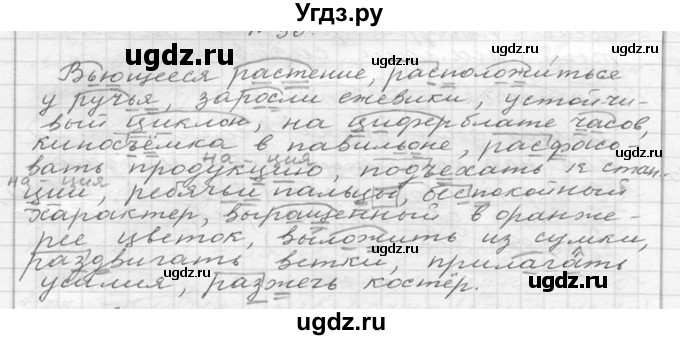 Угдз.ру
Вьющееся растение, расположиться
у ручья, заросли ежевики, устойчи-
вый циклон, на циферблате часов,
киносъёмка в павильоне, расфасо
на ция
вать продукцию, подъехать к стан-
на ция
ции, ребячьи пальцы, беспокойный
характер, выращенный в оранже-
рее цветок, выложить из сумки,
раздвигать ветки, прилагать
усилия, разжечь костёр.
ugdz.ru
ugdz.ru
ugdz.ru
ugdz.ru
ugdz.ru
ugdz.ru
ugdz.ru
ugdz.ru
ugdz.ru
ugdz.ru
ugdz.ru